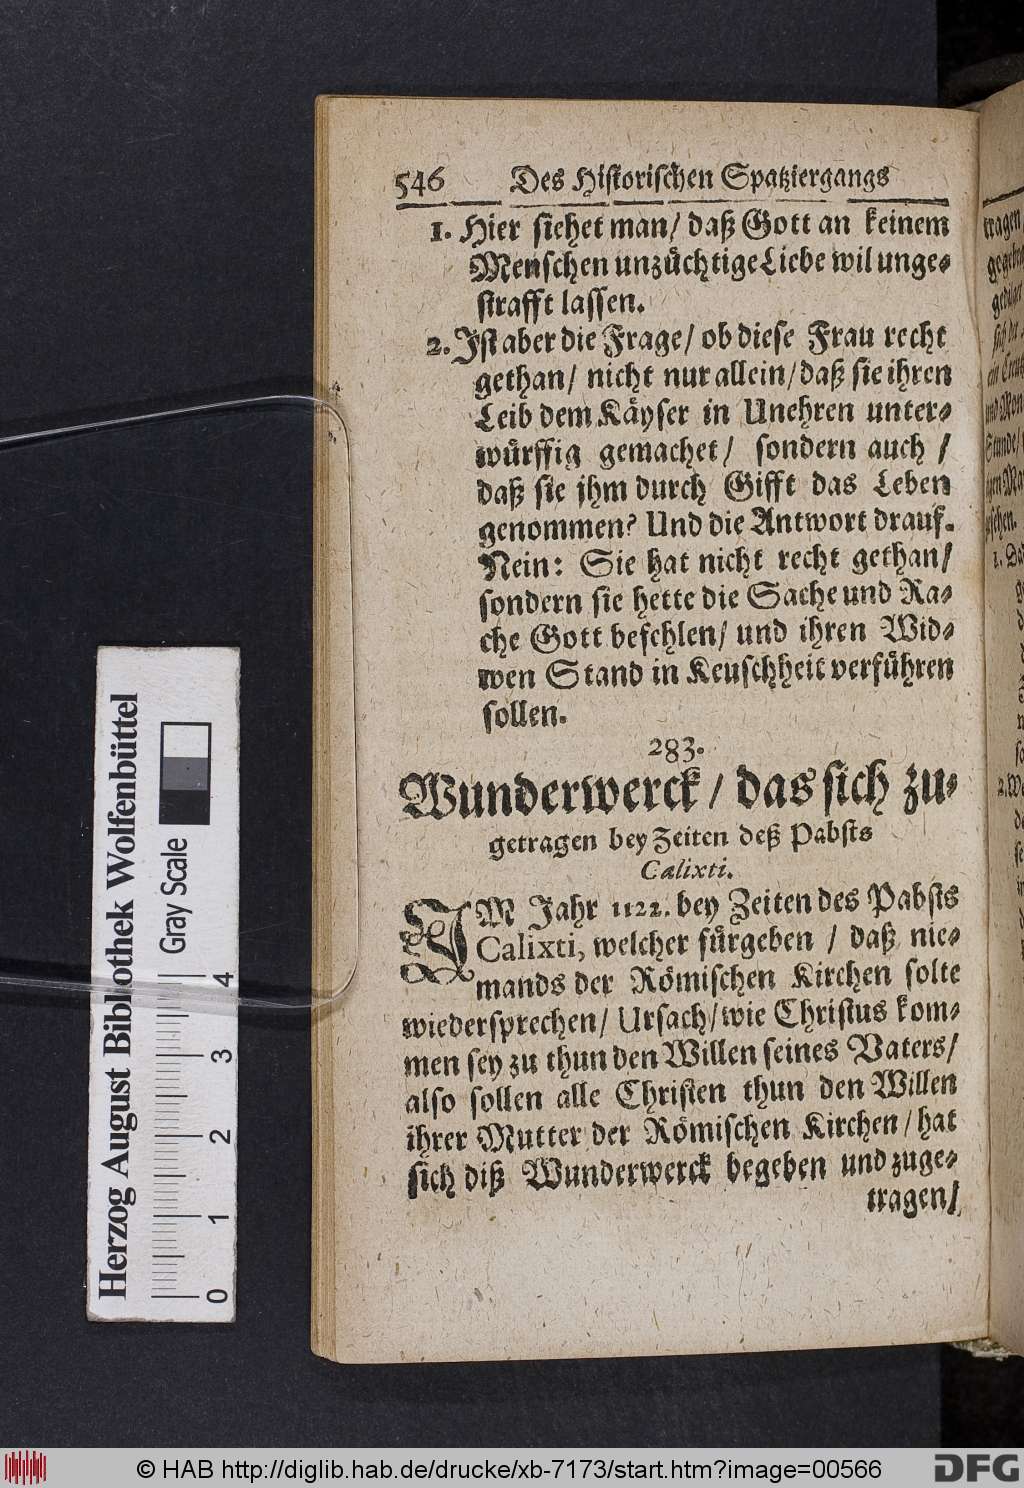 546 Des Historischen Spatziergangs
1. Hier siehet man/ daß Gott an keinem
Menschen unzüchtige Liebe wil unge-
strafft lassen.
2. Ist aber die Frage/ ob diese Frau recht
gethan/ nicht nur allein/ daß sie ihren
Leib dem Käyser in Unehren unter-
würffig gemachet/ sondern auch /
daß sie jhm durch Gifft das Leben
genommen? Und die Antwort drauf.
Nein: Sie hat nicht recht gethan/
sondern sie hette die Sache und Ra-
che Gott befehlen/ und ihren Wid-
wen Stand in Keuschheit verführen
sollen.
283.
Wunderwerck / das sich zu-
getragen bey Zeiten deß Pabsts
Calixti.
IM Jahr 1122. bey Zeiten des Pabsts
Calixti, welcher fürgeben / daß nie-
mands der Römischen Kirchen solte
wiedersprechen/ Ursach/ wie Christus kom-
men sey zu thun den Willen seines Vaters/
also sollen alle Christen thun den Willen
ihrer Mutter der Römischen Kirchen / hat
sich diß Wunderwerck begeben und zuge-
tragen/
tragen
Stunde/
1.
2.
Herzog August Bibliothek Wolfenbüttel
Gray Scale
0 1 2 3 4
© HAB http://diglib.hab.de/drucke/xb-7173/start.htm?image=00566
DFG